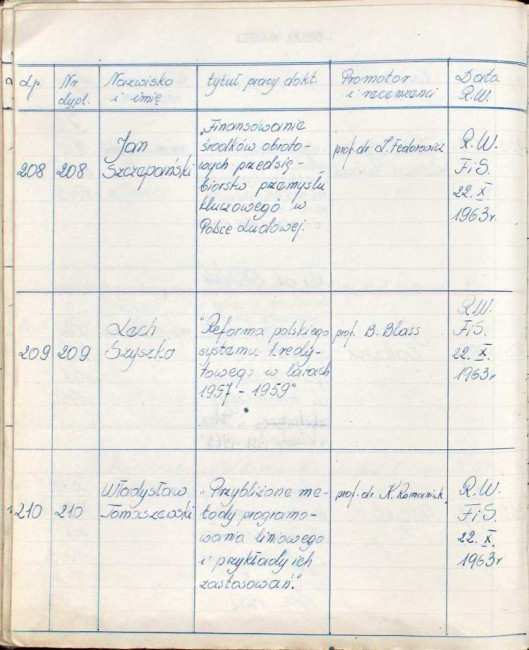 Lp Nr dypl. Nazwisko i imię tytuł pracy dokt. Promotor i recenzenci Data R.W.
208 208 Jan Szczepański
„Finansowanie
środków obroto-
wych przedsię-
biorstw przemysłu
kluczowego w
Polsce Ludowej.
prof. dr. Z. Fedorowicz
R.W.
FiS.
22. X.
1963r
209 209 Lech Szyszko
"Reforma polskiego
systemu kredy-
towego w latach
1957 - 1959"
prof. B. Blass
R.W.
FiS.
22. X.
1963r
210 210 Władysław Tomaszewski
„Przybliżone me-
tody programo-
wania liniowego
i przykłady ich
zastosowań."
prof. dr. K. Romaniuk
R.W.
FiS.
22. X.
1963r